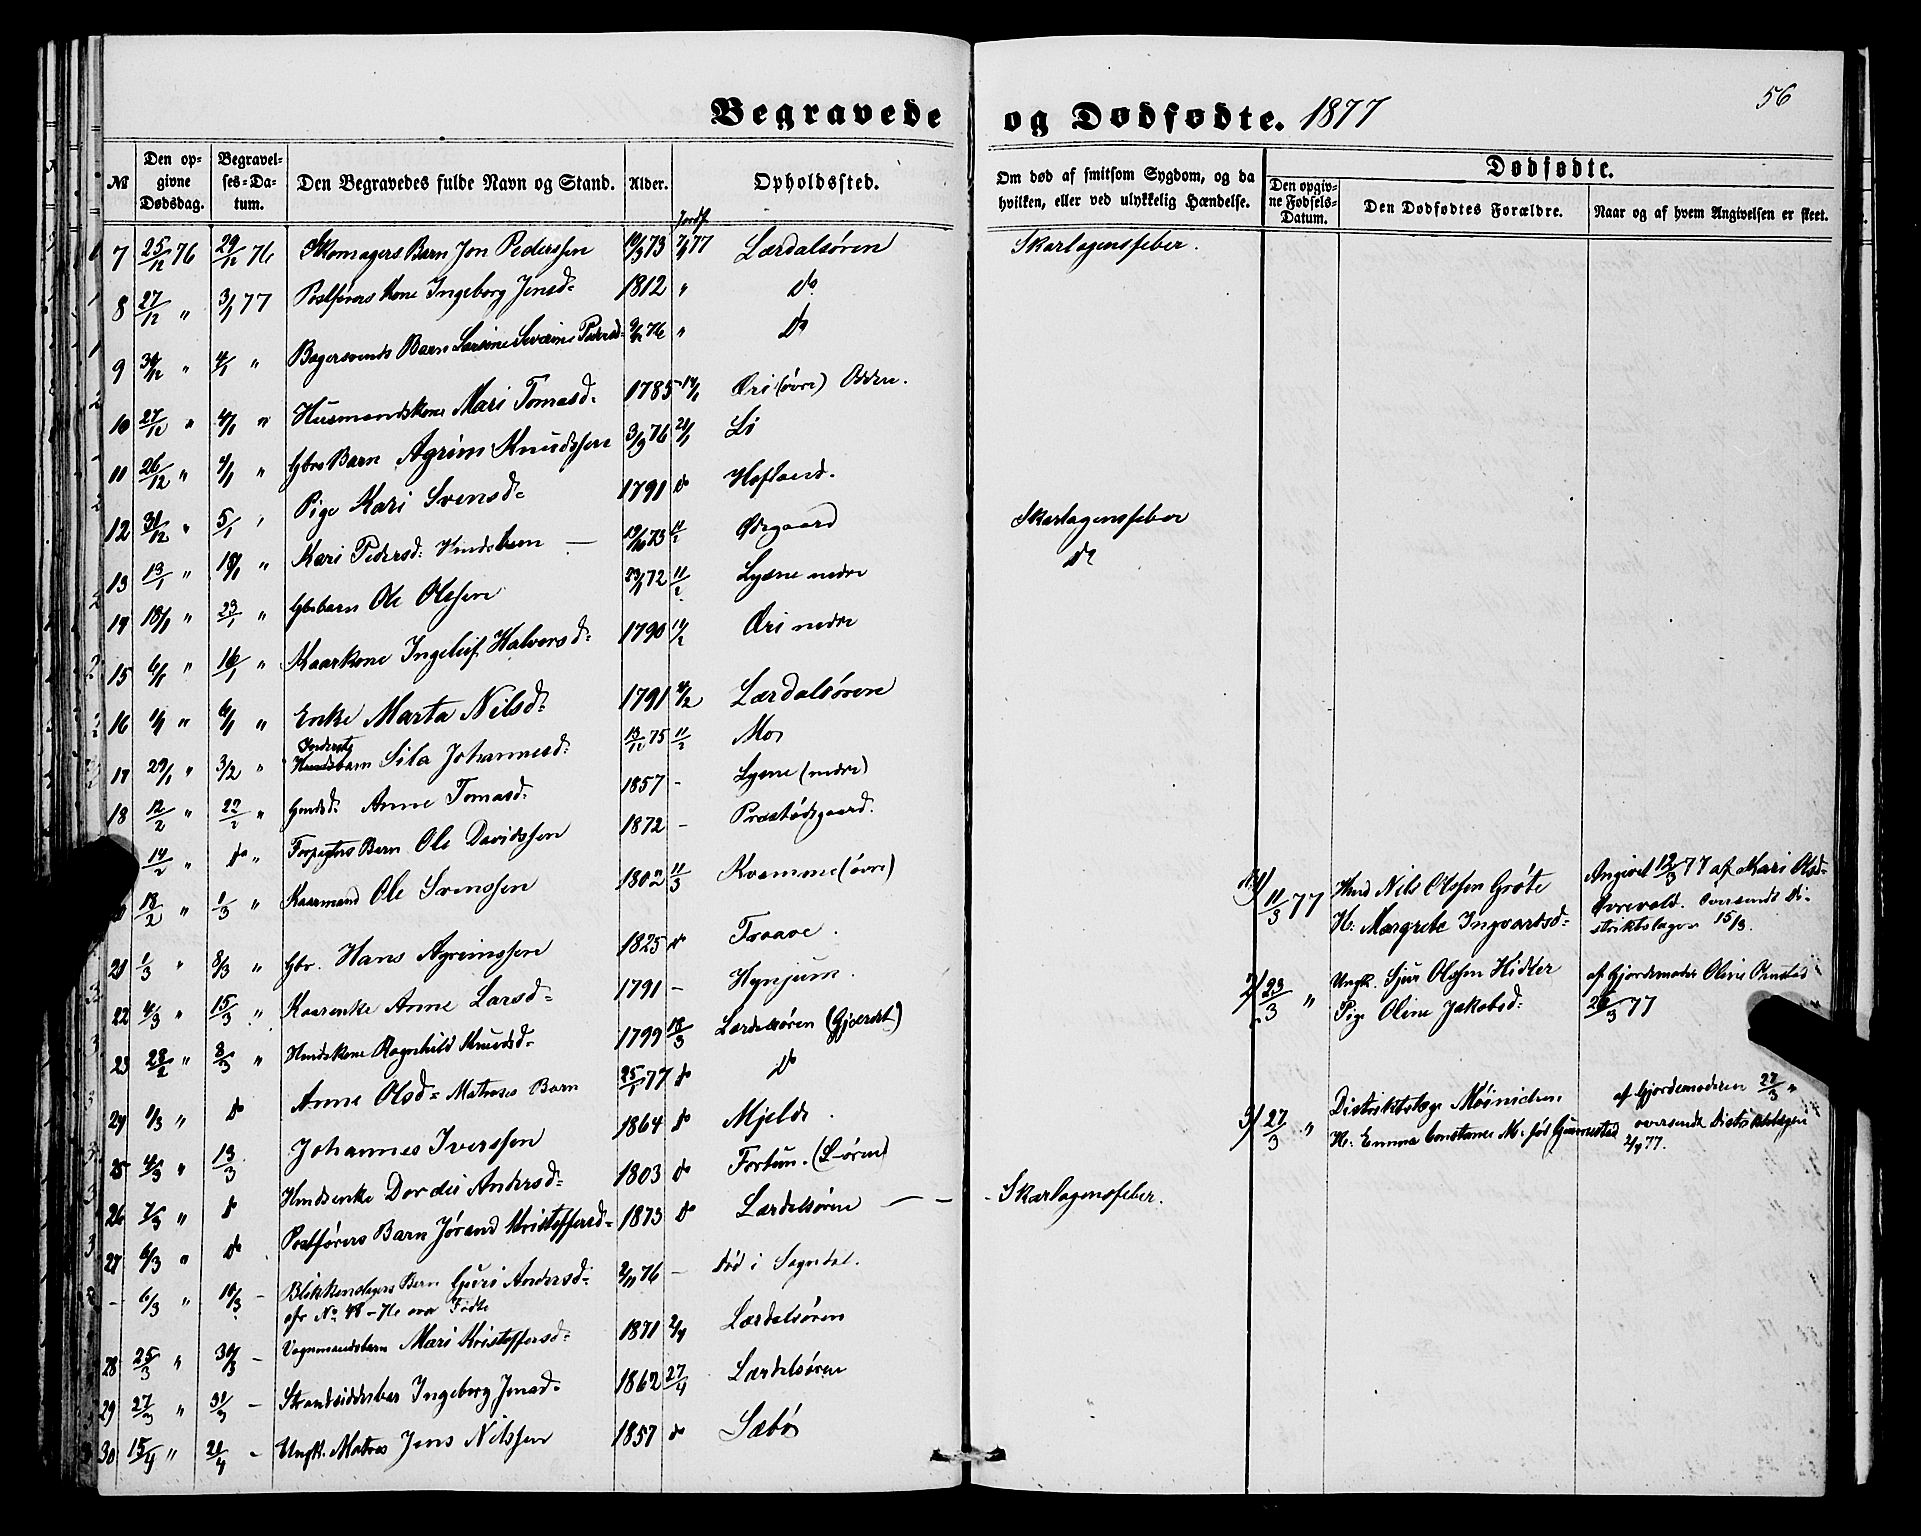 Begravede og Dødfødte. 1877
56
№ | Den opgivne Dødsdag. | Begravelses-Datum. | Den Begravedes fulde Navn og Stand. | Alder. | Jordf. | Opholdssted. | Om død af smitsom Sygdom, og da hvilken, eller ved ulykkelig Hændelse.
Dødfødte.
Den opgivne Fødsels-Datum. | Den Dødfødtes Forældre. | Naar og af hvem Angivelsen er skeet.
7 25/12 76 29/12 76 Skomagers Barn Jon Pederssen 73 77 Lærdalsøren Skarlagensfeber.
8 27/12 " 3/1 77 Postførers Kone Ingeborg Jensd= 1812 " do
9 " 4/1 " Bagersvends Barn Severine Pedersd= 76 " do
10 27/12 " 4/1 " Husmandskone Mari Tomasd= 1785 Øri (øvre) Odden.
11 26/12 " 4/1 " Gbrs Barn Agrim Knudssen 3/9 76 21/1 Li
12 31/12 " 5/1 " Pige Kari Svensd= 1791 do Hofland.
13 13/1 " 18/1 " Kari Pedersd: Hmdsbarn — 73 11/2 Øregaard Skarlagensfeber
14 18/1 " 23/1 " Gbsbarn Ole Olssen 72 11/2 Lysne nedre do
15 6/1 " 16/1 " Kaarkone Ingeleif Halvorsd= 1790 Øri nedre
16 " 6/1 " Enke Marta Nilsd= 1791 Lærdalsøren
17 29/1 " 3/2 " Inderstg barn Sila Johannesd: 13/12 75 11/2 Mo
18 12/2 " 22/2 " Gmdsd: Anne Tomasd: 1857 - Lysne (nedre)
14/2 " do " Forpagters Barn Ole Davidssen 1872 - Præstødegaard.
18/2 " 1/3 " Kaarmand Ole Svenssen 1802 11/3 Kvamme (øvre)
21 1/3 " 8/3 " Gbr. Hans Agrimssen 1825 do Traave.
22 4/3 " 15/3 " Kaarenke Anne Larsd= 1791 - Hynjum.
23 28/2 " 8/3 " Hmdskone Ragnhild Knudsd= 1799 18/3 Lærdalsøren
24 1/3 " do Anne Olsd= Matroses Barn 25/1 77 do do
25 4/3 " 13/3 Johannes Iverssen 1864 do Mjelde.
26 7/3 " do Hmdsenke Dordei Andersd= 1803 do Fortun. (L-øren)
27 6/3 " do Postførers Barn Jørand Kristoffersd= 1873 do Lærdalsøren — — - Skarlagensfeber.
- 6/3 " 10/3 - Blikkenslagers Barn Guri Andersd= 2/11 76 - død i Sogndal.
cfr No 48 - 76 over Fødte
28 25/3 " 30/3 - Vognmandsbarn Mari Kristoffersd= 1871 2/4 Lærdalsøren
29 27/3 " 31/3 - Strandsidderbar Ingeborg Jensd= 1862 27/4 Lærdalsøren
30 15/4 " 21/4 - Ungk. Matros Jens Nilssen 1857 do Sæbø
1/ 11/3 77 Hmd Nils Olssen Grøte
H: Margrete Ingvardsd=
Angivet 12/3 77 af Mari Olsd=
Ørevold. Oversendt Di-
striktslægen 15/3.
2/ 23/3 " Ungk. Sjur Olssen Hidler
Pige Oline Jakobsd:
af Gjordemoder Oline
77
3/ 27/3 " Distriktslæge Møinichen
H: Emma Constance M. fød
af Gjordemoderen 27/3 "
oversendt Distriktslægen
2/4 77.